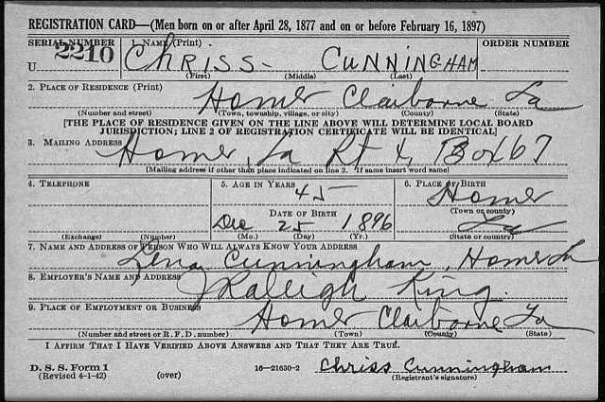 REGISTRATION CARD—(Men born on or after April 28, 1877 and on or before February 16, 1897)
SERIAL NUMBER 1. NAME (Print) ORDER NUMBER
U 2210 CHRISS- CUNNINGHAM
(First) (Middle) (Last)
2. PLACE OF RESIDENCE (Print)
Homer Claiborne La
(Number and street) (Town, township, village, or city) (County) (State)
[THE PLACE OF RESIDENCE GIVEN ON THE LINE ABOVE WILL DETERMINE LOCAL BOARD
JURISDICTION; LINE 2 OF REGISTRATION CERTIFICATE WILL BE IDENTICAL]
3. MAILING ADDRESS
Homer, La Rt Box 67
[Mailing address if other than place indicated on line 2. If same insert word same]
4. TELEPHONE 5. AGE IN YEARS 6. PLACE OF BIRTH
45 Homer
DATE OF BIRTH (Town or county)
Dec 25 1896 La
(Exchange) (Number) (Mo.) (Day) (Yr.) (State or country)
7. NAME AND ADDRESS OF PERSON WHO WILL ALWAYS KNOW YOUR ADDRESS
Lena Cunningham, Homer La
8. EMPLOYER'S NAME AND ADDRESS
Raleigh King.
9. PLACE OF EMPLOYMENT OR BUSINESS
Homer Claiborne La
(Number and street or R. F. D. number) (Town) (County) (State)
I AFFIRM THAT I HAVE VERIFIED ABOVE ANSWERS AND THAT THEY ARE TRUE.
D. S. S. Form 1
(Revised 4-1-42) (over) 16—21630-2 Chriss Cunningham
(Registrant's signature)